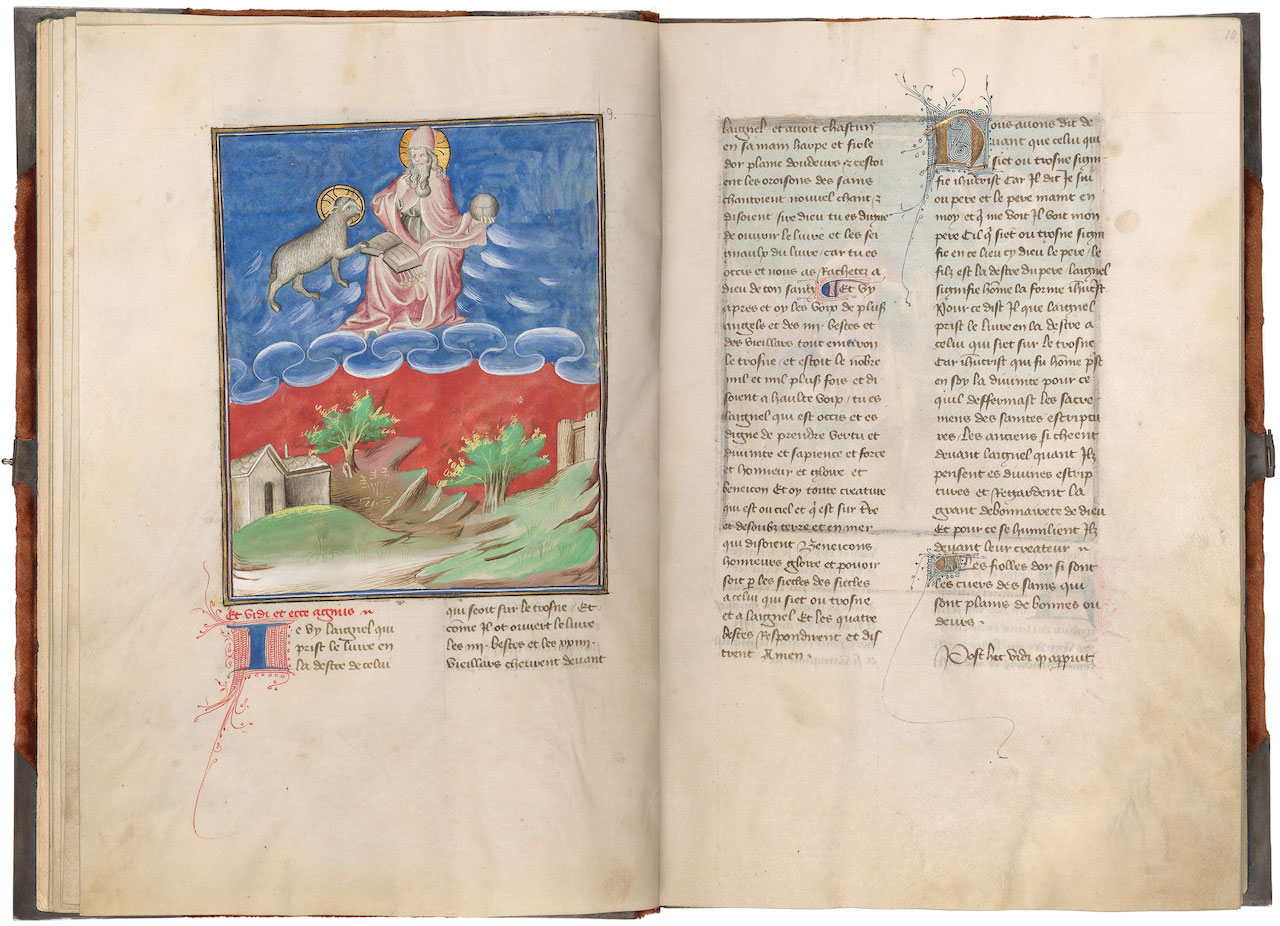 9.
Et vidi et ecce agnus
Je vy laignel qui
prist le livre en
la destre de celui
qui seoit sur le trosne / Et
come il ot ouvert le livre
les iiii. bestes et les xxiiii.
vieillars cheurent devant
10
laignel et avoit chascun
en sa main harpe et fiole
dor plaine doudeurs z cestoi
ent les oroisons des sains
chantoient nouvel chant z
disoient sire dieu tu es digne
de ouvrir le livre et les sei
gnaulx du livre / car tu es
occis et nous as rachetez a
dieu de ton sanc Et vy
apres et oy les voix de plus
angels et des iiii. bestes et
des vieillars tout environ
le trosne / et estoit le nobre
mil et mil plus fois et di
soient a haulte voix / tu es
laignel qui est occis et es
digne de prendre vertu et
divinite et sapience et force
et honneur et gloire et
beneicon Et oy toute creature
qui est ou ciel et q est sur tre
et desoubz terre et en mer
qui disoient Beneicons
honneurs gloire et povoir
soit p les siecles des siecles
a celui qui siet ou trosne
et a laignel Et les quatre
bestes respondirent et dis
trent Amen .
Nous avons dit de
vant que celui qui
siet ou trosne signi
fie ihucrist Car il dit Je sui
ou pere et le pere maint en
moy et q me voit il voit mon
pere Cil q siet ou trosne signi
fie en ce lieu cy dieu le pere / le
filz est la destre du pere laignel
signifie home la forme ihucrist
Pour ce dist il que laignel
prist le livre en la destre a
celui qui siet sur le trosne
Car ihucrist qui fu home pst
en soy la divinite pour ce
quil deffermast les sacre
mens des saintes escriptu
res. Les anciens si cheent
devant laignel quant ilz
pensent es divines escrip
tures et regardent la
grant debonnairete de dieu
Et pour ce se humilient ilz
devant leur createur
Les fiolles dor si sont
les cuers des sains qui
sont plains de bonnes ou
deurs .
Post hec vidi apparuit